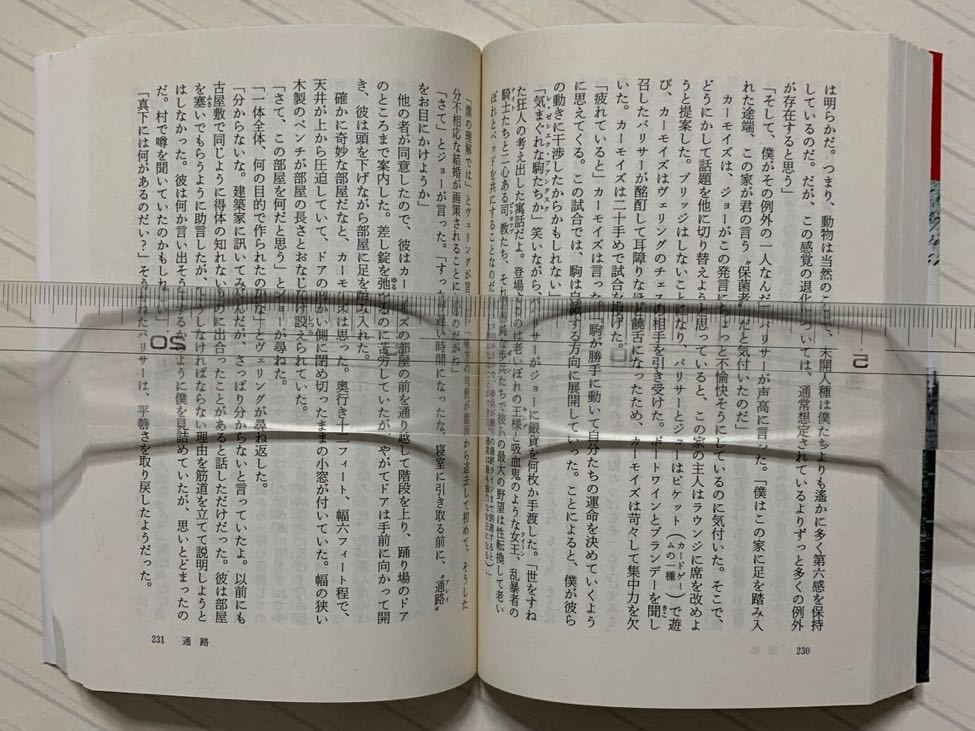 は明らかだ。つまり、動物は当然のこと、未開人種は僕たちよりも遙かに多く第六感を保持
しているのだ。だが、この感覚の退化については、通常想定されているよりずっと多くの例外
が存在すると思う」
「そして、僕がその例外の一人なんだ」パリサーが声高に言った。「僕はこの家に足を踏み入
れた途端、この家が君の言う〝保菌者〟だと気付いたのだ」
カーモイズは、ジョーがこの発言にちょっと不愉快そうにしているのに気付いた。そこで、
どうにかして話題を他に切り替えようと思っていると、この家の主人はラウンジに席を改めよ
うと提案した。ブリッジはしないことになり、パリサーとジョーはピケット（カードゲームの一種）で遊
び、カーモイズはヴェリングのチェスの相手を引き受けた。ポートワインとブランデーを聞し
召したパリサーが酩酊して耳障りなほど饒舌になったため、カーモイズは苛々して集中力を欠
いた。カーモイズは二十手めで試合を投げた。
「疲れていると」カーモイズは言った。「駒が勝手に動いて自分たちの運命を決めていくよう
に思えてくる。この試合では、駒は自滅する方向に展開していった。ことによると、僕が彼ら
の動きに干渉したからかもしれない」
「気まぐれな駒たちか」笑いながら、パリサーがジョーに銀貨を何枚か手渡した。「世をすね
た狂人の考え出した寓話だよ。登場するのは老いぼれの王様と吸血鬼のような女王、乱暴者の
騎士たちと二心ある司教たち、それに
ぼれとベッドを共にすることなのだ
「僕の理解では」とヴェリングが言
分不相応な結婚が画策されることに
「さて」とジョーが言った。「すっかり遅い時間になったな。寝室に引き取る前に、〝通路〟
をお目にかけようか」
他の者が同意したので、彼はカーモイズの部屋の前を通り越して階段を上り、踊り場のドア
のところまで案内した。差し錠を弛めるのに苦労していたが、やがてドアは手前に向かって開
き、彼は頭を下げながら部屋に足を踏み入れた。
確かに奇妙な部屋だなと、カーモイズは思った。奥行き十二フィート、幅六フィート程で、
天井が上から圧迫していて、ドアの向かい側に閉め切ったままの小窓が付いていた。幅の狭い
木製のベンチが部屋の長さとおなじだけ設えられていた。
「さて、この部屋を何だと思う」とジョーが尋ねた。
「一体全体、何の目的で作られたのかな」とヴェリングが尋ね返した。
「分からないな。建築家に訊いてみたんだが、さっぱり分からないと言っていたよ。以前にも
古屋敷で同じように得体の知れないものに出合ったことがあると話しただけだった。彼は部屋
を塞いでもらうように助言したが、どうしなければならない理由を筋道を立てて説明しようと
はしなかった。彼は何か言い出そうとするかのように僕を見詰めていたが、思いとどまったの
だ。村で噂を聞いていたのかもしれない」
「真下には何があるのだい？」そう尋ねたパリサーは、平静さを取り戻したようだった。
230
231 通路